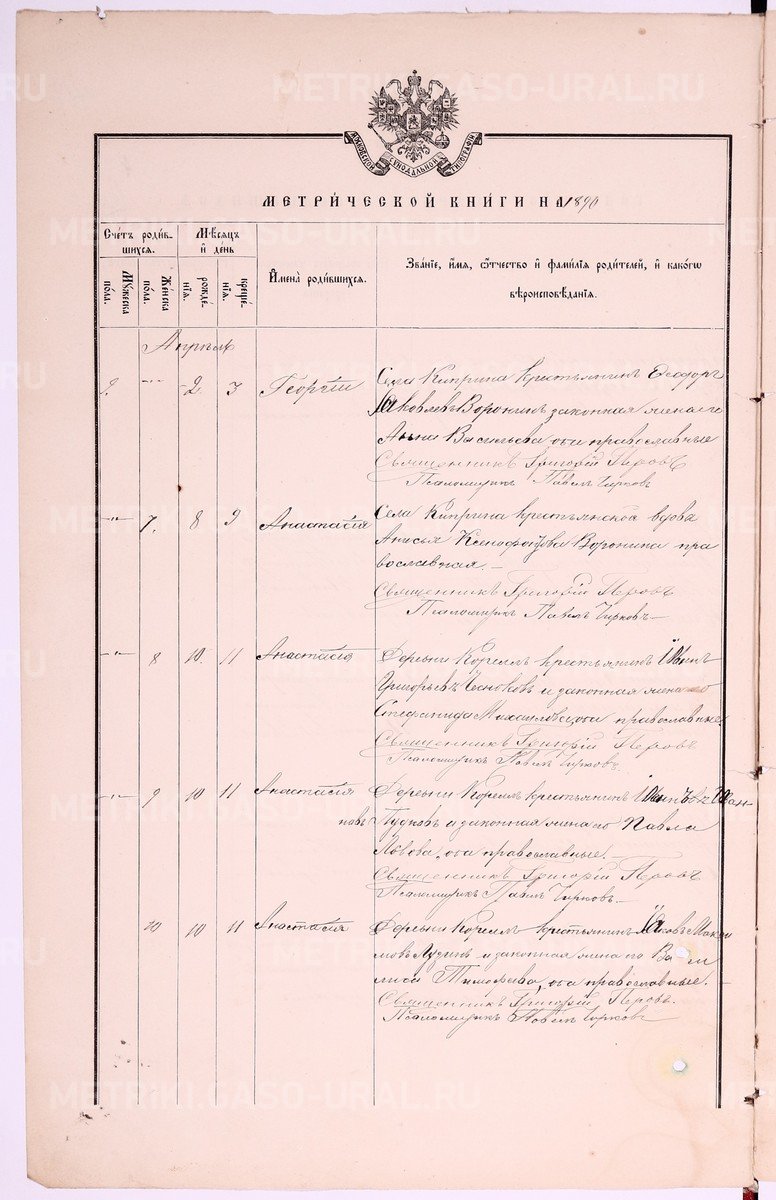 METRIKI.GASO-URAL.RU
МОСКОВСКОЙ СѴНОДАЛЬНОЙ ТИПОГРАФІИ
МЕТРИ́ЧЕСКОЙ КНИ́ГИ НА 1890
Сче́тъ роди́в-
шихсѧ.
Мꙋ́жеска
по́ла.
Же́нска
по́ла.
М́ѣсѧцъ
и҆ де́нь
рожде́-
нїѧ.
креще́-
нїѧ.
И҆мена̀ роди́вшихсѧ.
Зва́нїе, и҆́мѧ, ѻ҆́тчество и҆ фами́лїѧ роди́телей, и҆ како́гѡ
вѣроисповѣ́данїѧ.
Апрѣль
9. -"- 2. 3 Георгій
Села Киприна крестьянинъ Ѳеодоръ
Яковлевъ Воронинъ и законная жена его
Анна Васильева, оба православные
Священникъ Григорій Перовъ
Псаломщикъ Павелъ Чирковъ
-"- 7. 8 9 Анастасія
Села Киприна крестьянская вдова
Анисья Ксенофонтова Воронина пра
вославная.-
Священникъ Григорій Перовъ
Псаломщикъ Павелъ Чирковъ.-
-"- 8 10. 11 Анастасія
Деревни Корелъ крестьянинъ Иванъ
Григорьевъ и законная жена его
Стефанида Михайлова, оба православные.
Священникъ Григорій Перовъ
Псаломщикъ Павелъ Чирковъ.
-"- 9 10 11 Анастасія
Деревни Корелъ крестьянинъ Иван
новъ и законная жена его Павла
Львова, оба православные.-
Священникъ Григорій Перовъ
Псаломщикъ Павелъ Чирковъ.-
10 10 11 Анастасія
Деревни Корелъ крестьянинъ Яковъ Макси
мовъ Лузинъ и законная жена его Васи
лиса Тимофеева, оба православные.-
Священникъ Григорій Перовъ.
Псаломщикъ Павелъ Чирковъ